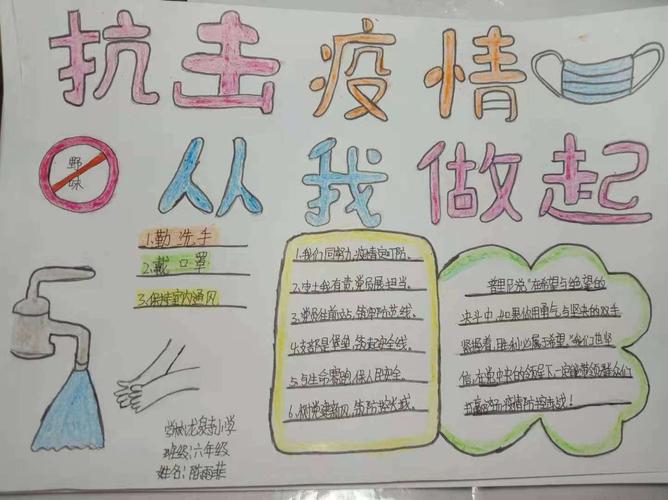 抗击疫情
从我做起
野味
1.勤洗手
2.戴口罩
3.保持室内通风
1.我们同努力,疫情定可防。
2.守土我有责,党员展担当。
3.党员往前站,筑牢防范线。
4.支部是堡垒,筑起安全线。
5.与生命赛跑,保人民安全。
6.树党建新风,筑防控长城。
普里尼说"在希望与绝望的
决斗中,如果你用勇气与坚决的双手
紧握着,胜利必属于希望"我们也坚
信,在党中央的领导下一定能带领群众们
打赢这场疫情防控走战!
学校:龙泉东小学
班级:六年级
姓名:陈雨菲